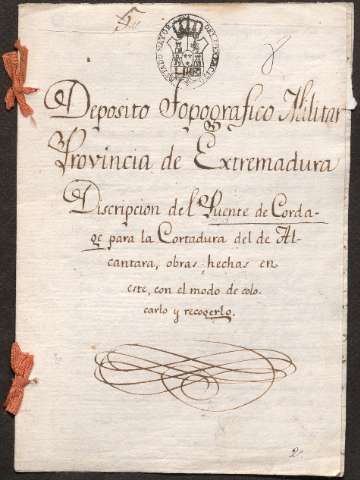 5
Deposito Topografico Militar
Provincia de Extremadura
Discripcion del Puente de Corda-
ge para la Cortadura del de Al-
cantara, obras hechas en
este, con el modo de colo
carlo y recogerlo.